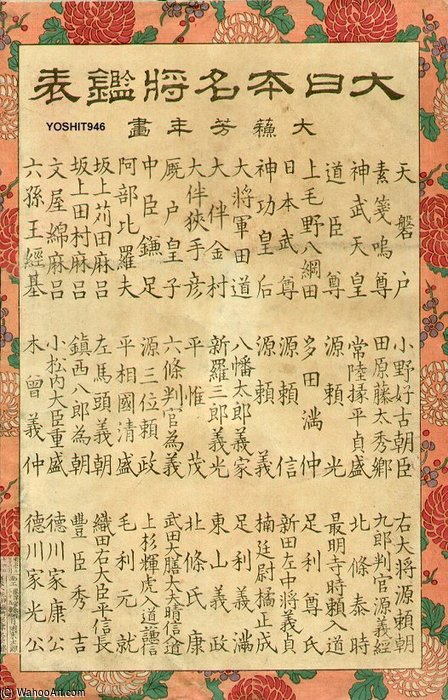 大日本名將鑑表
大蘓芳年畫
YOSHIT946
天磐戸
素箋嗚尊
神武天皇
道臣尊
上毛野八綱田
日本武尊
神功皇后
大將軍田道
大伴金村
大伴狹手彦
厩戸皇子
中臣鎌足
阿部比羅夫
坂上苅田麻呂
坂上田村麻呂
文屋綿麻呂
六孫王經基
小野好古朝臣
田原藤太秀郷
常陸掾平貞盛
源頼光
多田満仲
源頼信
源頼義
八幡太郎義家
新羅三郎義光
平惟茂
六條判官為義
源三位頼政
平相國清盛
左馬頭義朝
鎮西八郎為朝
小松内大臣重盛
木曾義仲
右大将源頼朝
九郎判官源義經
北條泰時
最明寺時頼入道
足利尊氏
新田左中将義貞
楠廷尉橘正成
足利義満
東山義政
北條氏康
武田大膳大夫晴信道
上杉輝虎入道謙信
毛利元就
織田右大臣平信長
豊臣秀吉
徳川家康公
徳川家光公
(C) WahooArt.com